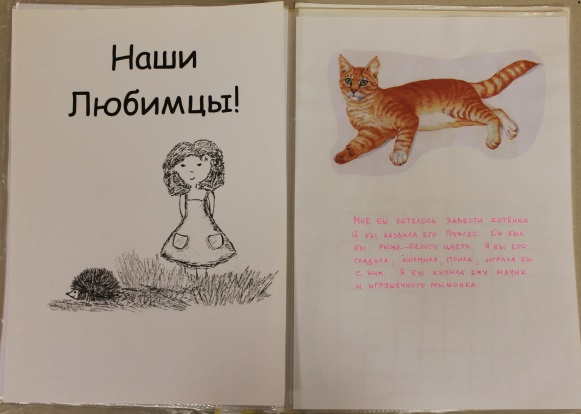 Наши
Любимцы!
Мне бы хотелось завести котёнка
Я бы назвала его Персес. Он был
бы рыже-белого цвета. Я бы его
гладила, кормила, поила, играла бы
с ним. Я бы купила ему мячик
и игрушечного мышонка.